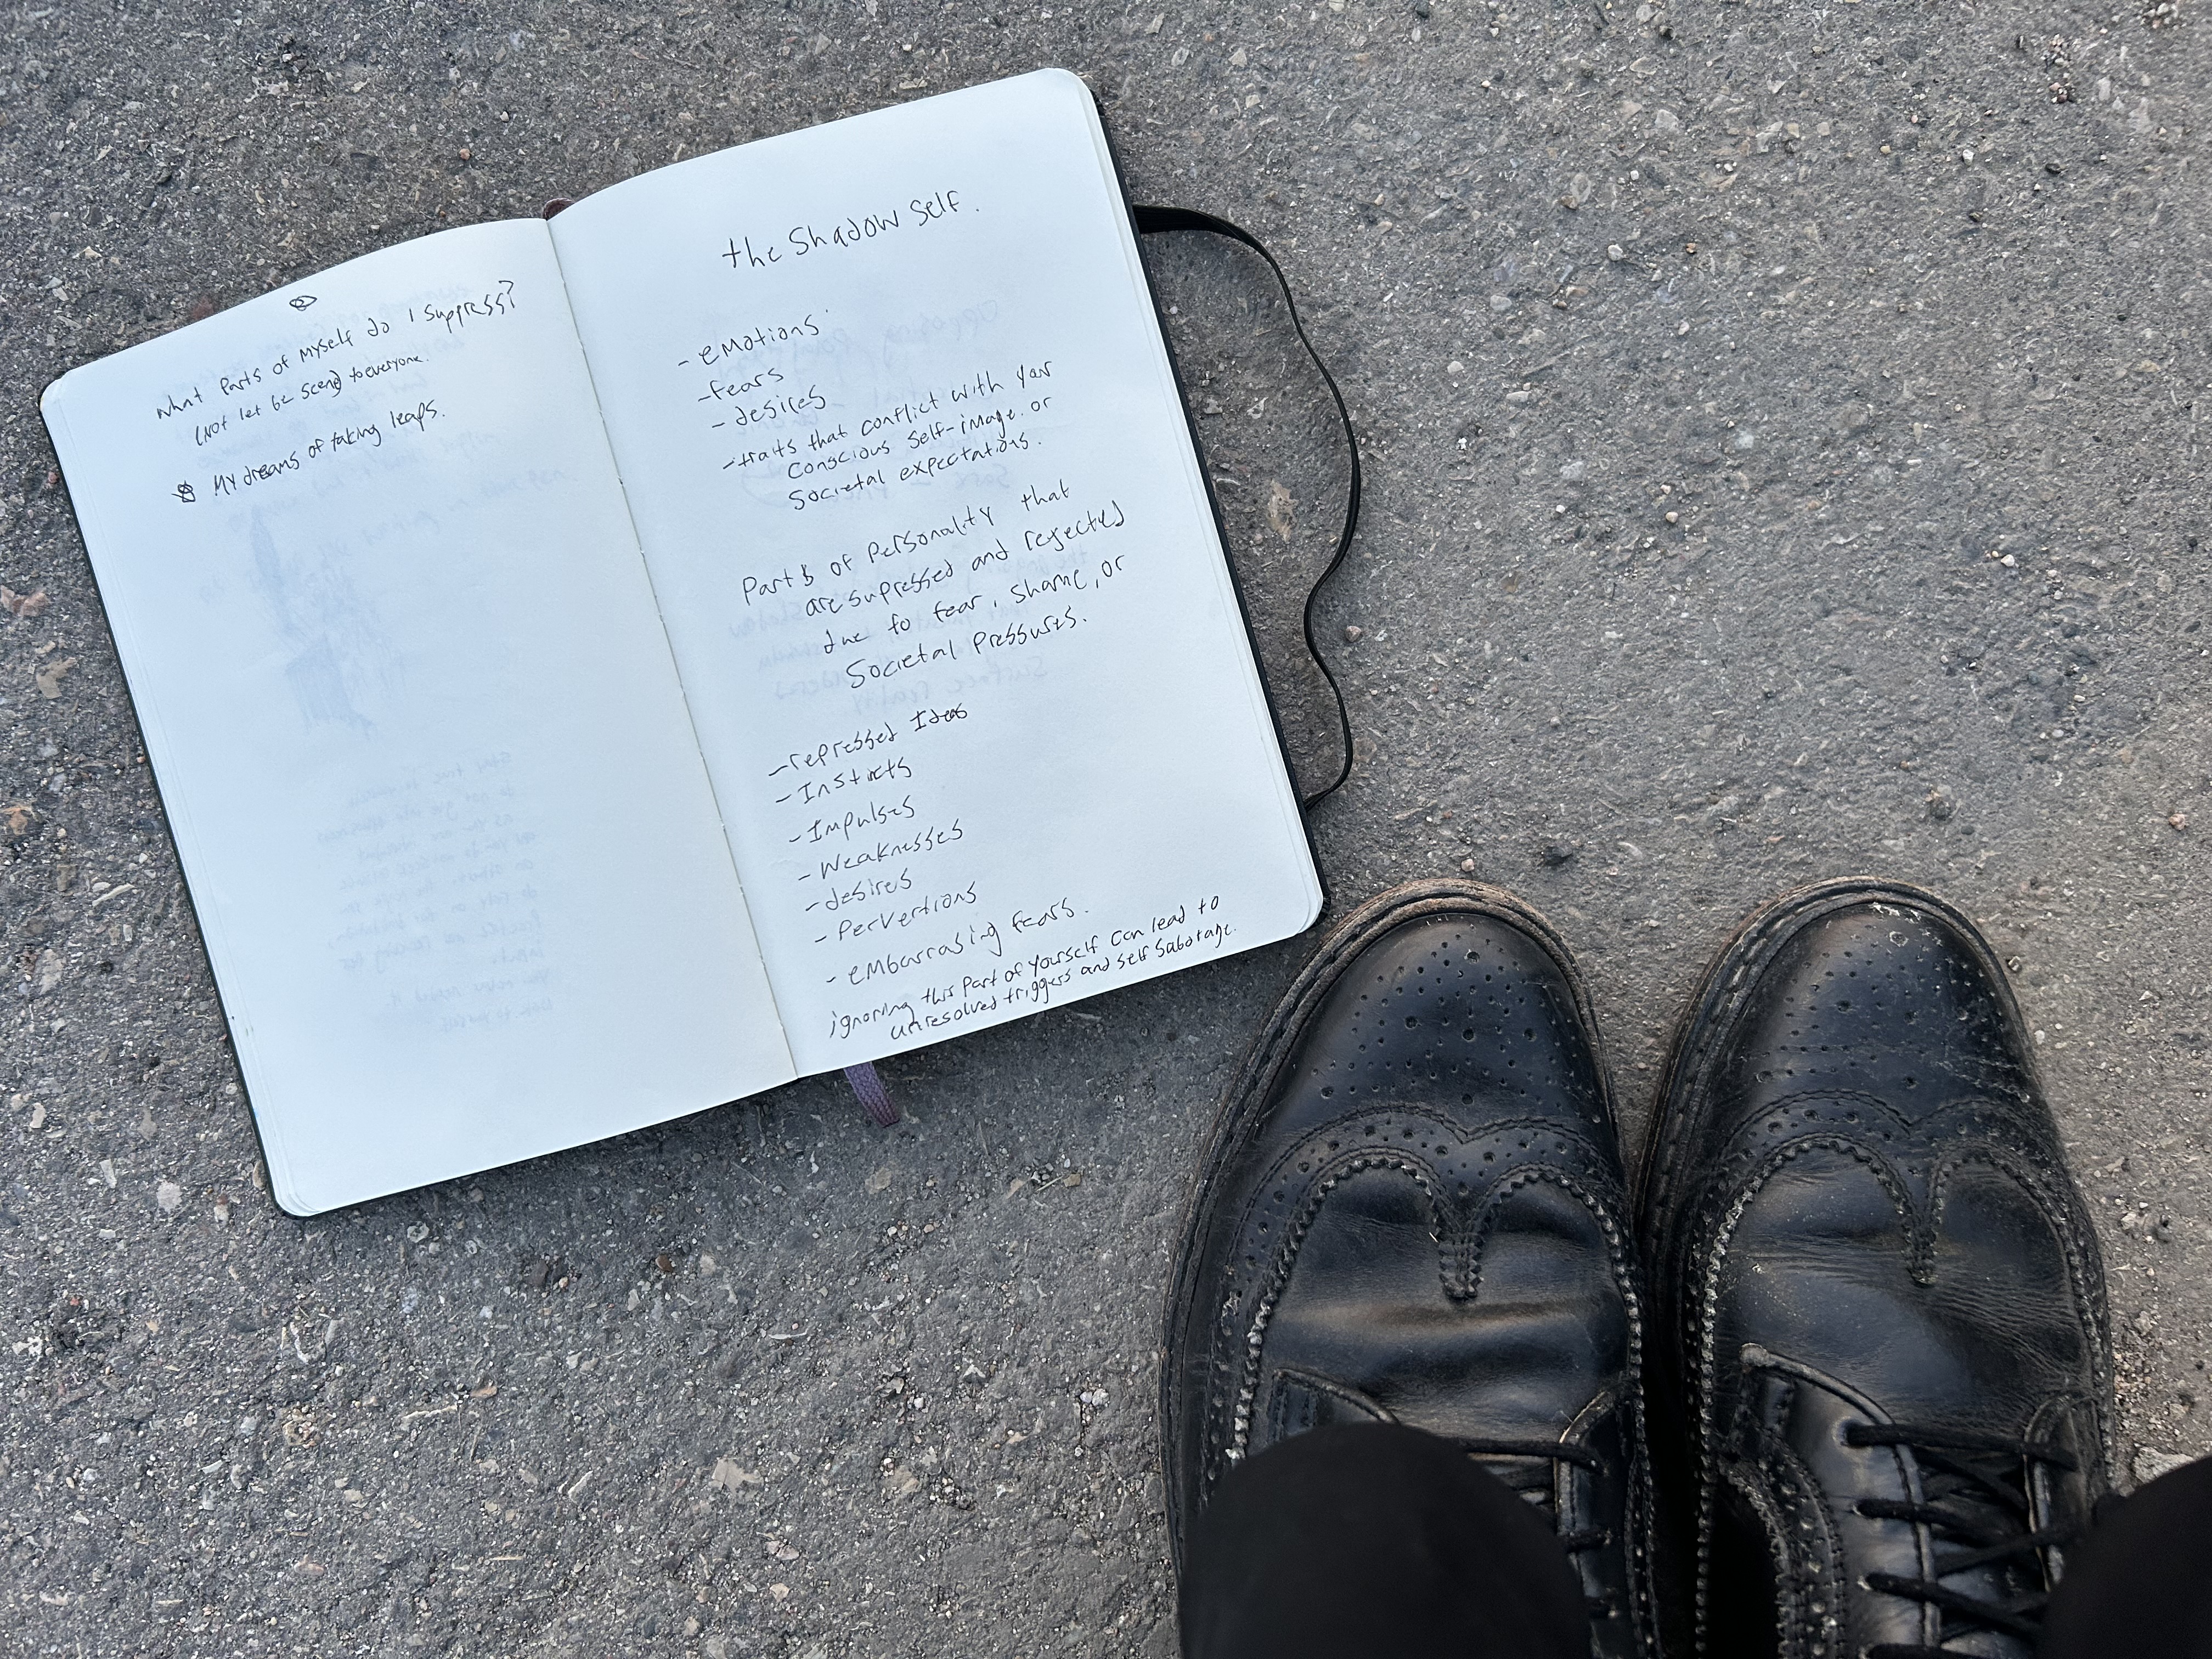 What parts of myself do I suppress?
(not let be seen) to everyone.
My dreams of taking leaps.
the Shadow Self.
- emotions
- fears
- desires
- traits that conflict with your
conscious self-image. or
societal expectations.
Parts of personality that
are supressed and rejected
due to fear, shame, or
societal pressures.
- repressed Ideas
- Instincts
- Impulses
- Weaknesses
- desires
- Pervertions
- embarrasing fears.
ignoring this part of yourself can lead to
unresolved triggers and self sabotage.